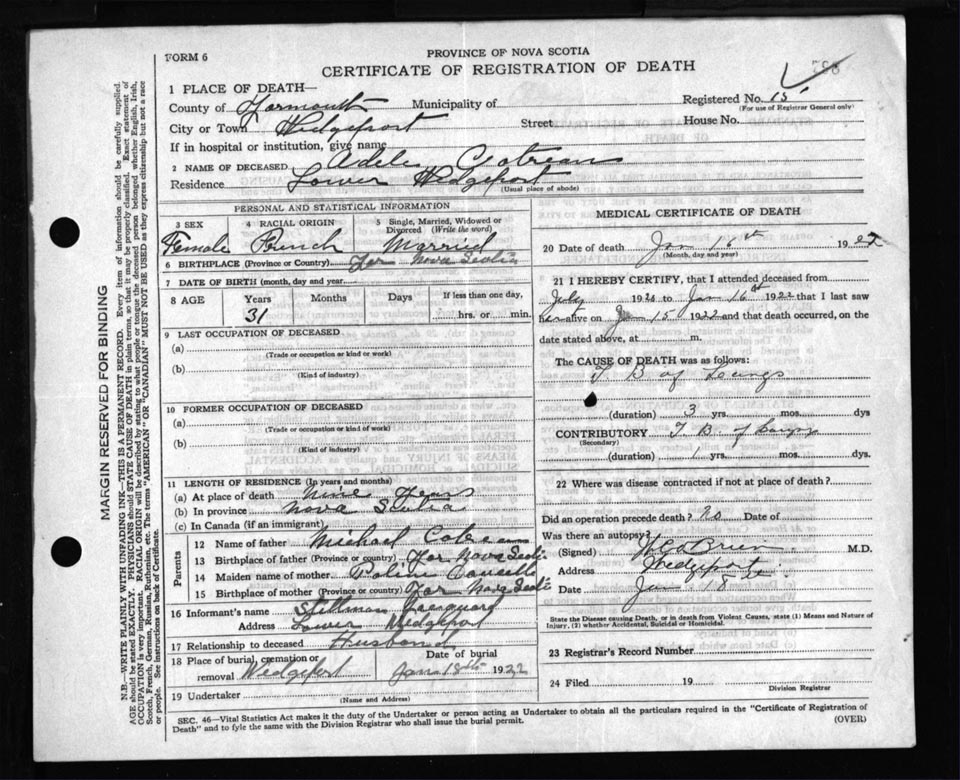 FORM 6
PROVINCE OF NOVA SCOTIA
CERTIFICATE OF REGISTRATION OF DEATH
1 PLACE OF DEATH—
County of Yarmouth Municipality of
Registered No. 15
(For use of Registrar General only)
City or Town Wedgeport Street House No.
If in hospital or institution, give name
2 NAME OF DECEASED Adele
Residence Lower Wedgeport
(Usual place of abode)
PERSONAL AND STATISTICAL INFORMATION
3 SEX 4 RACIAL ORIGIN 5 Single, Married, Widowed or Divorced (Write the word)
Female French Married
6 BIRTHPLACE (Province or Country) Yar Nova Scotia
7 DATE OF BIRTH (month, day and year)
8 AGE Years Months Days If less than one day,
31 hrs. or min.
9 LAST OCCUPATION OF DECEASED
(a)
(Trade or occupation or kind or work)
(b)
(Kind of industry)
10 FORMER OCCUPATION OF DECEASED
(a)
(Trade or occupation or kind of work)
(b)
(Kind of industry)
11 LENGTH OF RESIDENCE (In years and months)
(a) At place of death Nine Years
(b) In province Nova Scotia
(c) In Canada (if an immigrant)
Parents
12 Name of father Michael
13 Birthplace of father (Province or country) Yar Nova Scoti
14 Maiden name of mother
15 Birthplace of mother (Province or country) Yar Nova Scoti
16 Informant's name Stillman Jacquard
Address Lower Wedgeport
17 Relationship to deceased Husband
18 Place of burial, cremation or removal Wedgeport Date of burial Jan 18th 1922
19 Undertaker
(Name and Address)
MEDICAL CERTIFICATE OF DEATH
20 Date of death Jan 16th 1922
(Month, day and year)
21 I HEREBY CERTIFY, that I attended deceased from
July 192 to Jan 16 1922 that I last saw
her alive on Jan 15 1922 and that death occurred, on
date stated above, at m.
The CAUSE OF DEATH was as follows:
T B of Lungs
(duration) 3 yrs. mos. dys
CONTRIBUTORY T. B. of
(Secondary)
(duration) 1 yrs. mos. dys.
22 Where was disease contracted if not at place of death?
Did an operation precede death? No Date of
Was there an autopsy?
(Signed) O'Brien M.D.
Address Wedgeport
Date Jan 18th
State the Disease causing Death, or in death from Violent Causes, state (1) Means and Nature of
Injury, (2) whether Accidental, Suicidal or Homicidal.
23 Registrar's Record Number
24 Filed 19
Division Registrar
SEC. 46—Vital Statistics Act makes it the duty of the Undertaker or person acting as Undertaker to obtain all the particulars required in the "Certificate of Registration of
Death" and to fyle the same with the Division Registrar who shall issue the burial permit.
(OVER)
MARGIN RESERVED FOR BINDING
N.B.—WRITE PLAINLY WITH UNFADING INK—THIS IS A PERMANENT RECORD. Every item of information should be carefully supplied.
AGE should be stated EXACTLY. PHYSICIANS should STATE CAUSE OF DEATH in plain terms, so that it may be properly classified. Exact statement of
OCCUPATION is very important. RACIAL ORIGIN will be described by stating to what people or tongue the deceased person belonged whether English, Irish,
Scotch, French, German, Russian, Ruthenian, etc. The terms "AMERICAN" OR "CANADIAN" MUST NOT BE USED as they express citizenship but not a race
or people. See instructions on back of Certificate.